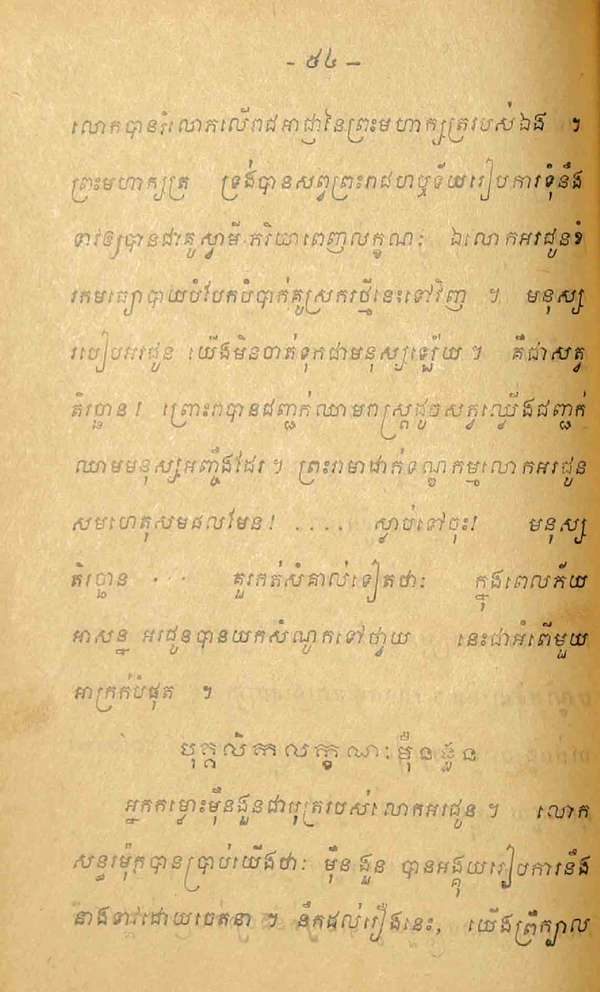 - ៥៤ -
លោកបានរំលោភលើរាជអាជ្ញានៃព្រះមហាក្សត្ររបស់ឯង ។
ព្រះមហាក្សត្រ ទ្រង់បានសព្វព្រះរាជហឬទ័យរៀបការទុំនឹង
ទាវឲ្យបានជាគូស្វាមី ភរិយាពេញលក្ខណៈ ឯលោកអរជូនខំ
រកមធ្យោបាយបំបែកបំបាក់គូស្រករថ្មីនេះទៅវិញ ។ មនុស្ស
របៀបអរជូន យើងមិនចាត់ទុកជាមនុស្សឡើយ ។ គឺជាសត្វ
តិរច្ឆាន ! ព្រោះវាបានជញ្ជក់ឈាមរាស្ត្រដូចសត្វឈ្លើងជញ្ជក់
ឈាមមនុស្សអញ្ចឹងដែរ ។ ព្រះរាមាដាក់ទណ្ឌកម្មលោកអរជូន
សមហេតុសមផលមែន ! .... ស្ដាប់ទៅចុះ! មនុស្ស
តិរច្ឆាន ... គួរកត់សំគាល់ទៀតថា: ក្នុងពេលភ័យ
អាសន្ន អរជូនបានយកសំណូកទៅថ្វាយ នេះជាអំពើមួយ
អាក្រក់បំផុត ។
បុគ្គលិកលក្ខណៈម៉ឺនងួន
អ្នកឈ្មោះម៉ឺនងួនជាបុត្ររបស់លោកអរជូន ។ លោក
សន្ធរម៉ុកបានប្រាប់យើងថា: ម៉ឺនងួន បានអង្គុយរៀបការនឹង
នាងទាវដោយចេតនា ។ នឹកដល់រឿងនេះ, យើងព្រឺក្បាល